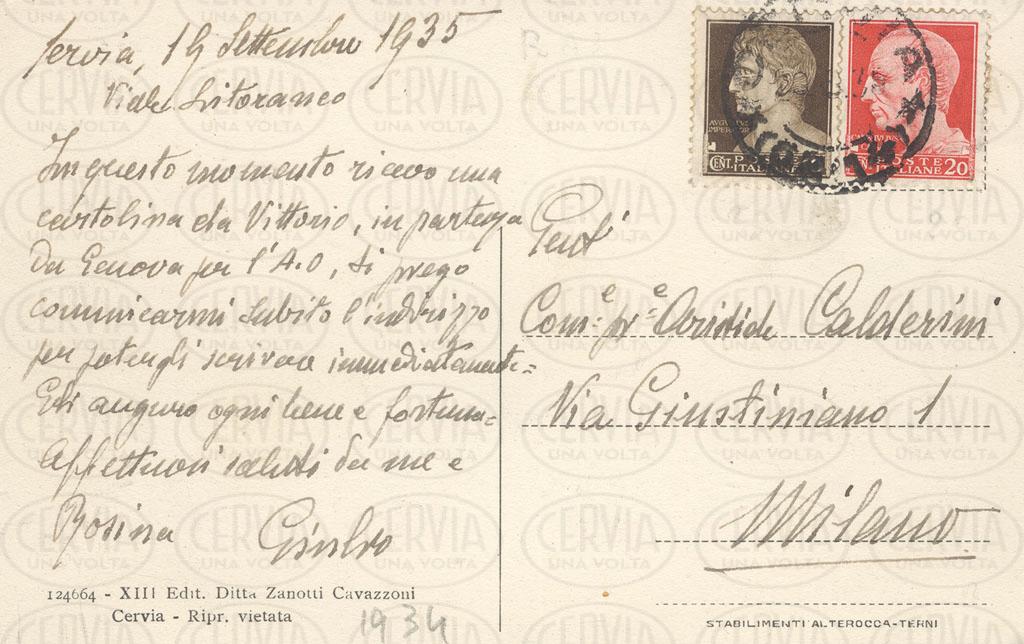 Cervia, 19 Settembre 1935
Viale Litoraneo
In questo momento ricevo una
cartolina da Vittorio, in partenza
da Genova per l'A.O, ti prego
comunicarmi subito l'indirizzo
per potergli scrivere immediatamente=
Gli auguro ogni bene e fortuna=
Affettuosi saluti da me e
Rosina Giulio
124664 - XIII Edit. Ditta Zanotti Cavazzoni
Cervia - Ripr. vietata
1934
CENT. POSTE ITALIANE
POSTE
ITALIANE 20
Gent
Com.e pr.e Aristide Calderini
Via Giustiniano 1
Milano
STABILIMENTI ALTEROCCA-TERNI
CERVIA
UNA VOLTA